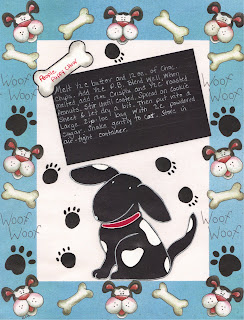 People
Puppy Chow
Melt 1/2 c butter and 12 oz. of Choc.
Chips. Add 1 c. P.B. Blend well. When
melted add 12 oz Crispix and 1 1/2 c roasted
Peanuts. Stir until coated. Spread on Cookie
Sheet & let dry a bit. Then put into a
Large Zip-loc bag with 2 c. powdered
Sugar. Shake gently to coat. Store in
air-tight container.
Woof
Woof
Woof
Woof
Woof
Woof
Woof
Woof